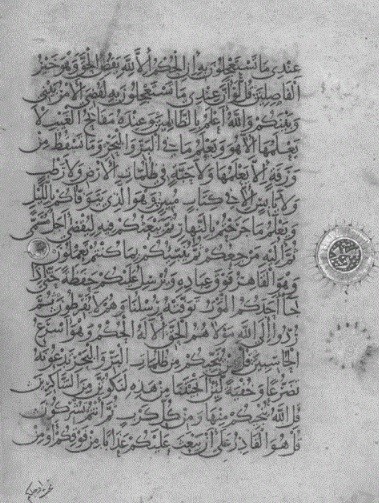 عندي ما تستعجلون به إن الحكم إلا لله يقص الحق وهو خير
الفاصلين قل لو أن عندي ما تستعجلون به لقضي الأمر بيني
وبينكم والله أعلم بالظالمين وعنده مفاتح الغيب لا
يعلمها إلا هو ويعلم ما في البر والبحر وما تسقط من
ورقة إلا يعلمها ولا حبة في ظلمات الأرض ولا رطب
ولا يابس إلا في كتاب مبين وهو الذي يتوفاكم بالليل
ويعلم ما جرحتم بالنهار ثم يبعثكم فيه ليقضى أجل مسمى
ثم إليه مرجعكم ثم ينبئكم بما كنتم تعملون
وهو القاهر فوق عباده ويرسل عليكم حفظة حتى إذا
جاء أحدكم الموت توفته رسلنا وهم لا يفرطون ثم
ردوا إلى الله مولاهم الحق ألا له الحكم وهو أسرع
الحاسبين قل من ينجيكم من ظلمات البر والبحر تدعونه
تضرعا وخفية لئن أنجيتنا من هذه لنكونن من الشاكرين
قل الله ينجيكم منها ومن كل كرب ثم أنتم تشركون
قل هو القادر على أن يبعث عليكم عذابا من فوقكم أو من